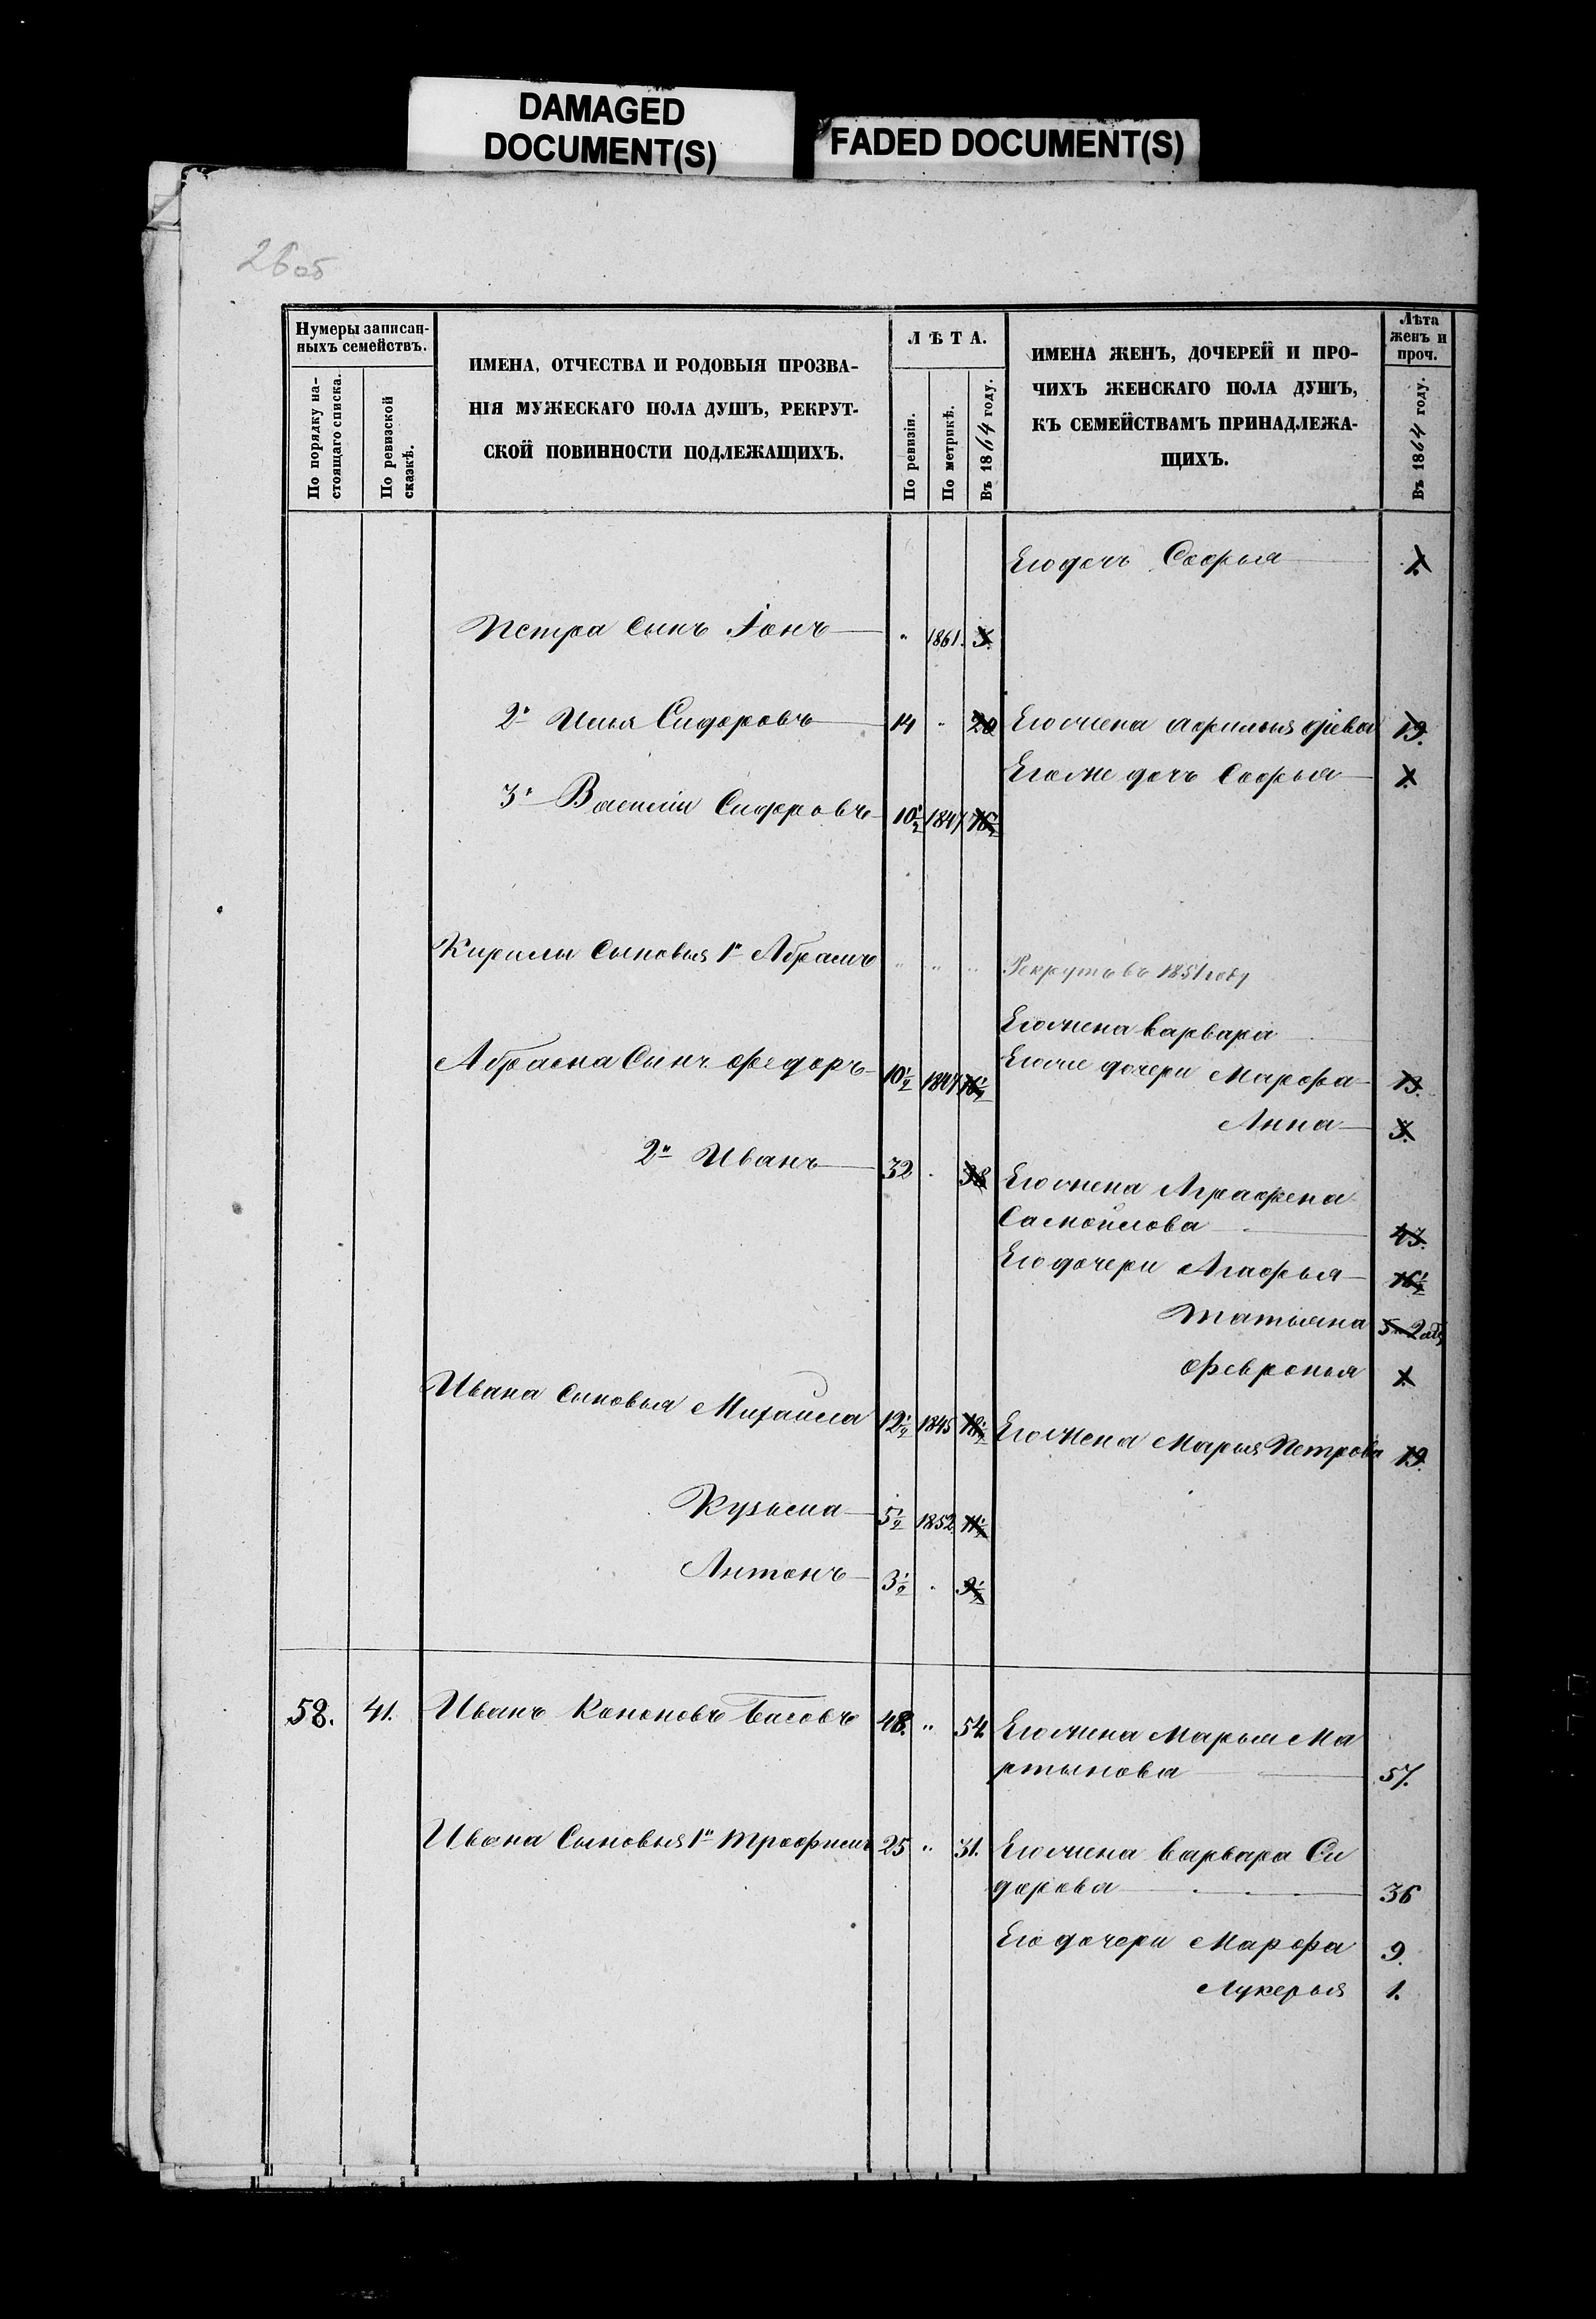 DAMAGED
DOCUMENT(S)
FADED DOCUMENT(S)
26об
Нумеры записан-
ныхъ семействъ.
По порядку на-
стоящаго списка.
По ревизской
сказкѣ.
ИМЕНА, ОТЧЕСТВА И РОДОВЫЯ ПРОЗВА-
НІЯ МУЖЕСКАГО ПОЛА ДУШЪ, РЕКРУТ-
СКОЙ ПОВИННОСТИ ПОДЛЕЖАЩИХЪ.
ЛѢТА.
По ревизіи.
По метрикѣ.
Въ 1864 году.
ИМЕНА ЖЕНЪ, ДОЧЕРЕЙ И ПРО-
ЧИХЪ ЖЕНСКАГО ПОЛА ДУШЪ,
КЪ СЕМЕЙСТВАМЪ ПРИНАДЛЕЖА-
ЩИХЪ.
Лѣта
женъ и
проч.
Въ 1864 году.
Его дочь Софья 1.
Петра сынъ Іонъ " 1861. 3.
2й Илья Сидоровъ 14 " 20 Его жена 19.
Его же дочь Софья 1.
3й Василій Сидоровъ 10½ 1847 16½
Кирилы Сыновья 1й Абрамъ " " " Рекрутъ въ 1851 году
Его жена Варвара
Абрама Сынъ Федоръ 10½ 1847 16½ Его же дочери Марфа 13.
Анна 3.
2й Иванъ 32 " 38 Его жена Аграфена
Самойлова 43.
Его дочери Агафья 16½
Татьяна
Февронья 1.
Ивана Сыновья Михаила 12½ 1845 18½ Его жена Марья Петрова 19.
Кузьма 5½ 1852 11½
Антонъ 3½ " 9½
58. 41. Иванъ Кононовъ Басовъ 48. " 54. Его жена Марья Ма
ртынова 57.
Ивана Сыновья 1й Трофимъ 25 " 31. Его жена Варвара Си
дорова 36
Его дочери Марфа 9.
Лукерья 1.